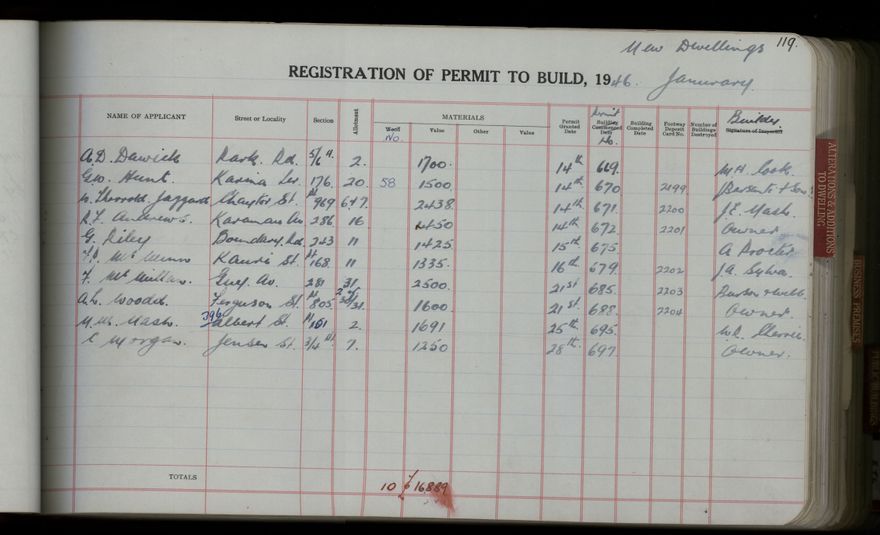 New Dwellings 119.
REGISTRATION OF PERMIT TO BUILD, 1946. January
NAME OF APPLICANT Street or Locality Section Allotment MATERIALS Wood No. Value Other Value Permit Granted Date Permit Building Commenced Date No. Building Completed Date Footway Deposit Card No. Number of Buildings Destroyed Builder Signature of Inspector
A.D. Dawick Park Rd. 2. 1700. 14th 669. M H. Cook
G.W. Hunt Karina 176. 20. 58 1500. 14th 670 2199
Jaggard St. Pt 969 6+7. 2438 14th 671. 2200 J.E. Mash.
Andrews. 286 16 2450 14th 672. 2201 Owner
G. Riley Boundary Rd. 243 11 1425 15th 675. A Procter
St. Pt 168. 11 1335. 16th 679 2202 J.A. Sylva.
F. McMillan. Guy Av. 281 31. 2500. 21st 685. 2203
A.L. Woods. Ferguson St. Pt 805 1600. 21st 688. 2204 Owner.
Mash. 396 Albert St. Pt 151 2. 1691 25th 695.
C Morgan. Jensen St. 7. 1250 28th 697. Owner.
TOTALS 10 16889
ALTERATIONS & ADDITIONS
TO DWELLING
BUSINESS PREMISES
PUBLIC BUILDINGS